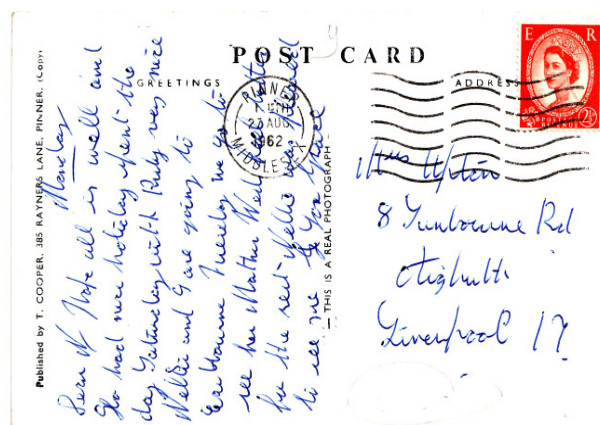 POST CARD
GREETINGS
ADDRESS
E R
2½
POSTAGE
PINNER
27 AUG
1962
MIDDLESEX
Published by T. COOPER, 385 RAYNERS LANE, PINNER. (Copy)
THIS IS A REAL PHOTOGRAPH
Monday
Dear N Hope all is well and
had nice holiday spent the
day Saturday with Ruby very nice
Nellie and I are going to
Eastbourne Tuesday we go to
see her Mother Wed
for the rest Nellie was pleased
to see me
Mrs Upton
8 Rd
Aigburth
Liverpool 17